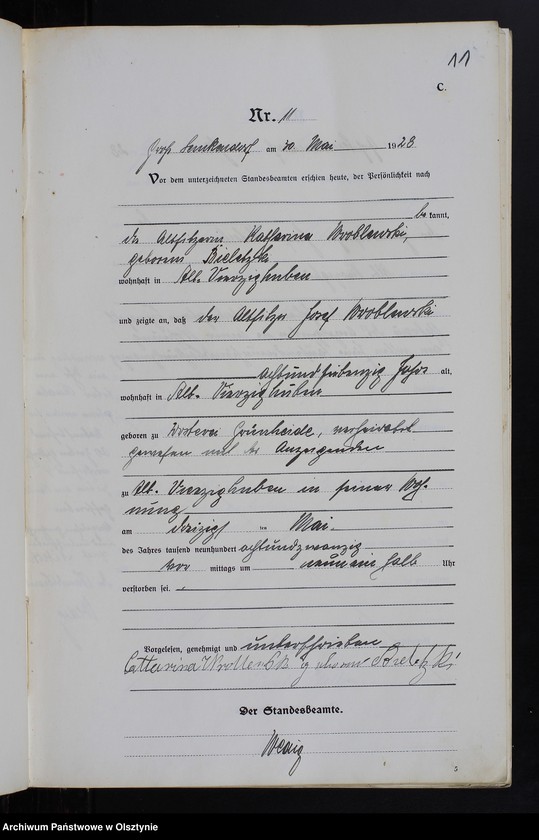 11
C.
Nr. 11
Groß Lemkendorf am 30. Mai 1928
Vor dem unterzeichneten Standesbeamten erschien heute, der Persönlichkeit nach
be kannt,
die Altsitzerin Katharina Wroblewski,
geborene Bieletzki
wohnhaft in Alb. Vierzighuben
und zeigte an, daß der Altsitzer Josef Wroblewski
achtundsiebenzig Jahre alt,
wohnhaft in Alb. Vierzighuben
geboren zu Grünheide, verheiratet
gewesen mit der Anzeigenden
zu Alb. Vierzighuben in seiner Woh-
nung
am dreizigst ten Mai
des Jahres tausend neunhundert achtundzwanzig
vor mittags um neunein halb Uhr
verstorben sei.
Vorgelesen, genehmigt und unterschrieben
Catharina geborene Bieletzki
Der Standesbeamte.
s
Archiwum Państwowe w Olsztynie